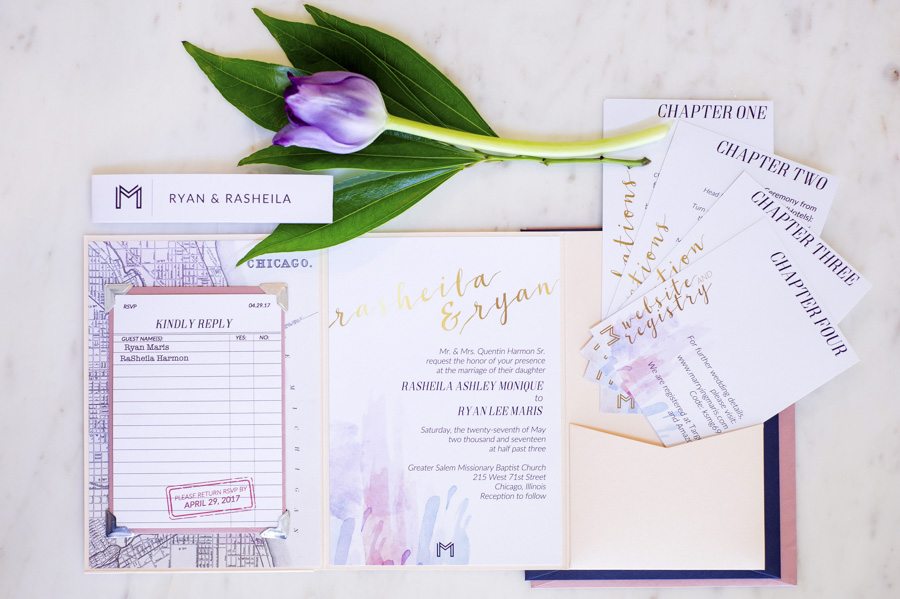 M
RYAN & RASHEILA
CHICAGO.
MICHIGAN
RSVP 04.29.17
KINDLY REPLY
GUEST NAME(S): YES: NO:
Ryan Maris
RaSheila Harmon
PLEASE RETURN RSVP BY
APRIL 29, 2017
rasheila
& ryan
Mr. & Mrs. Quentin Harmon Sr.
request the honor of your presence
at the marriage of their daughter
RASHEILA ASHLEY MONIQUE
to
RYAN LEE MARIS
Saturday, the twenty-seventh of May
two thousand and seventeen
at half past three
Greater Salem Missionary Baptist Church
215 West 71st Street
Chicago, Illinois
Reception to follow
M
CHAPTER ONE
CHAPTER TWO
Ceremony from
Head
CHAPTER THREE
CHAPTER FOUR
website AND
registry
For further wedding details,
please visit:
www.marryingmaris.com
We are registered at
and
M